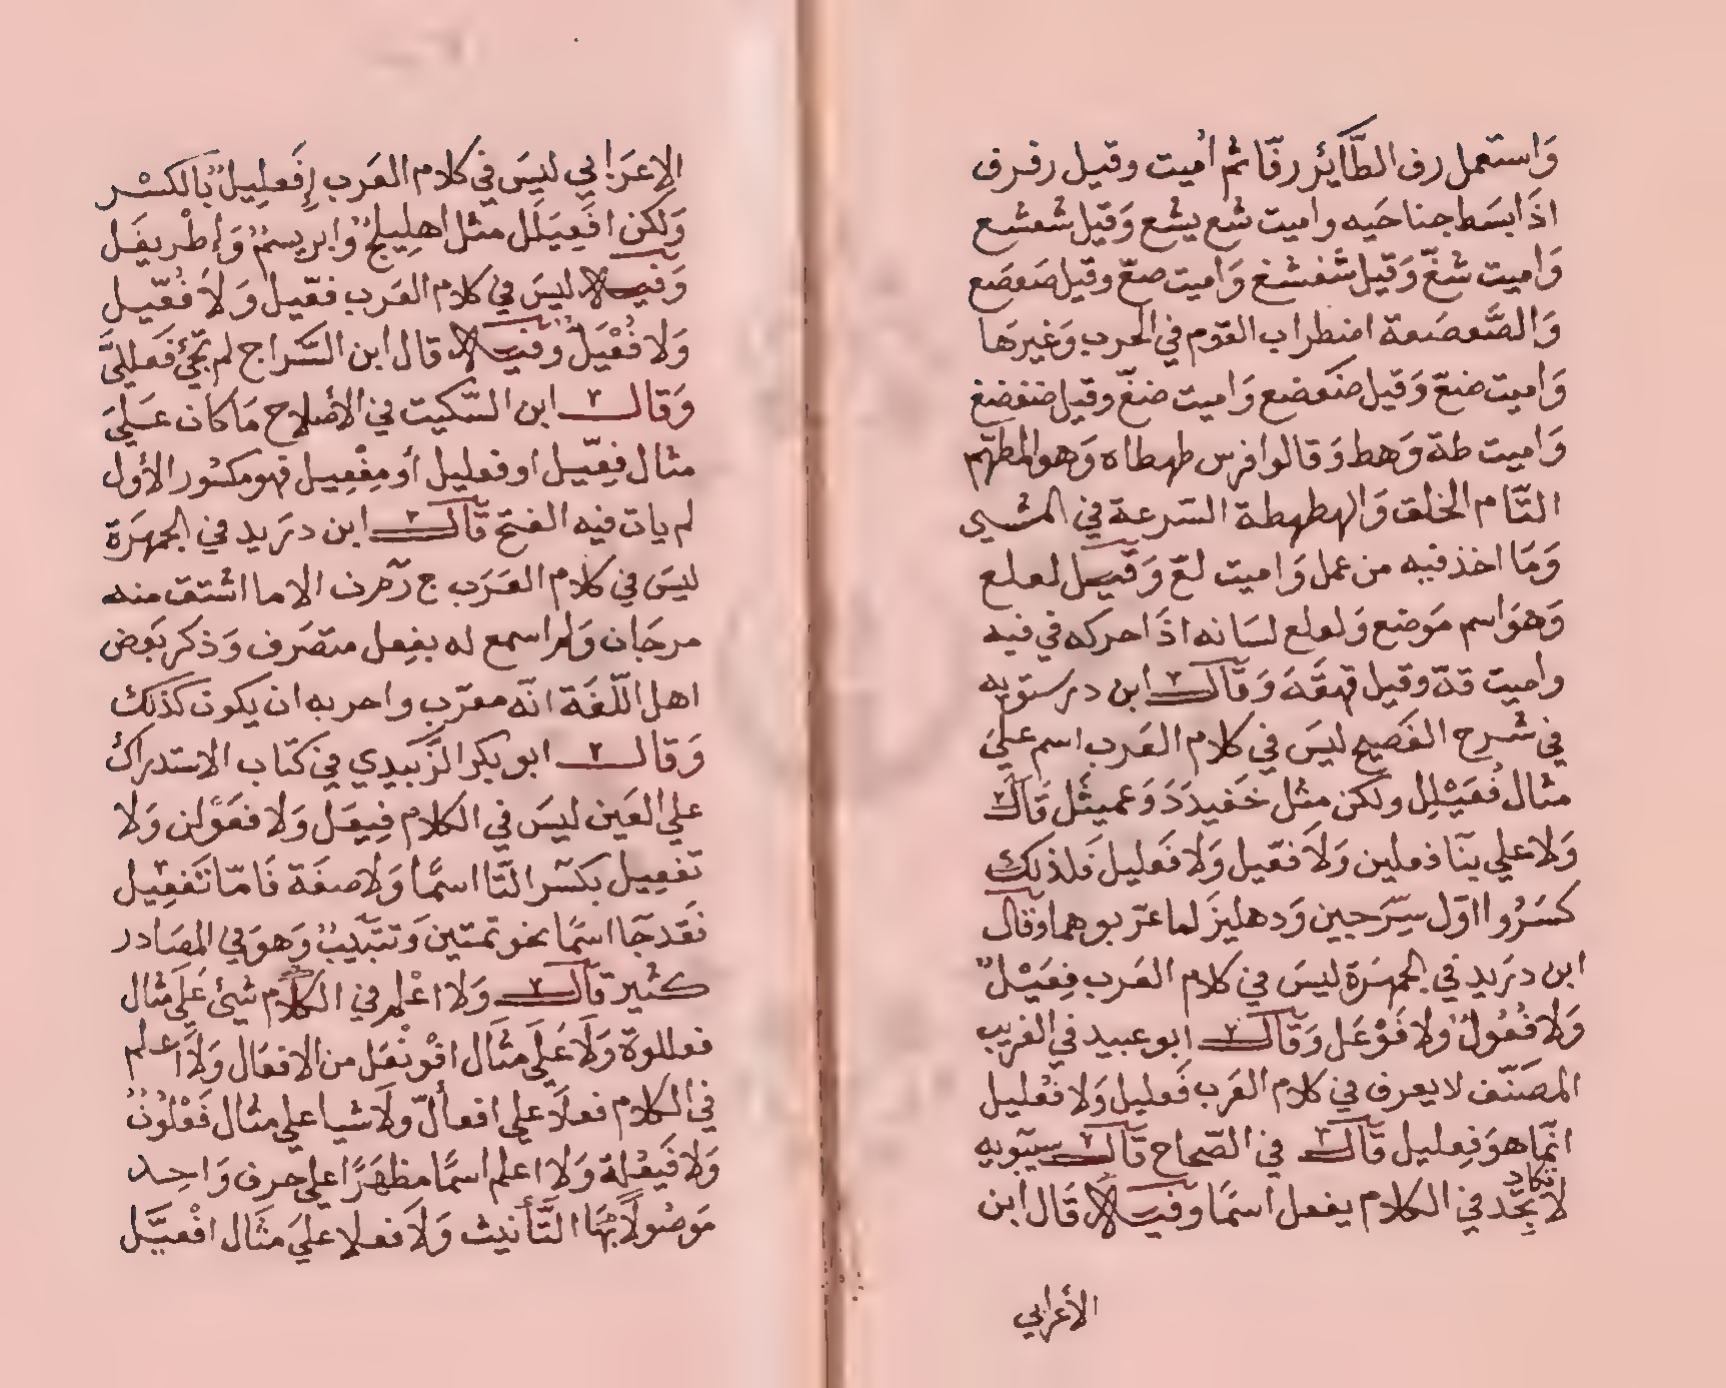 وَاستعمل رف الطَّائِر رفّا ثم أميت وقيل رفرف
اذَا بسَط جناحَيه واميت شع يشع وَقيل شعشع
وَاميت شغّ وَقيل شغشغ وَاميت صعّ وقيل صَعصَع
وَالصَّعصَعة اضطراب القوم في الحرب وَغيرهَا
وَاميت ضعّ وَقيل ضعضع وَاميت ضغّ وقيل ضغضغ
وَاميت طهّ وَهط وَقالوا فرس طهطاه وَهو المطهّم
التّام الخلق وَالهطهطة السّرعة في المشيي
وَمَا اخذ فيه من عمل وَاميت لعّ وَقيل لعلع
وَهوَ اسم مَوضع وَلعلع لسَانه اذَا حركه في فيه
واميت قهّ وقيل قهقَهَ وَقَالَ ابن درستويه
في شرح الفَصيح ليسَ في كلام العَرب اسم عليَ
مثال فُعَيْلِل ولكن مِثل خَفيدَدَ وَعميثَل قَالَ
وَلا علي بنَا فعلين وَلاَ فعّيل وَلا فَعليل فَلذلك
كسَرُوا اوّل سِرَجين وَدهليزَ لما عرّبوهما وَقال
ابن دريد في الجمهَرَة ليسَ في كلام العَرب فِعَيْلٌ
وَلا فُعُولٌ ولا فَوْعَل وَقَالَ ابو عبيد في الغريب
المصَنّف لا يعرف في كلام العَرب فَعليل وَلا فُعْليل
انّما هوَ فِعليل قَالَ في الصّحاح قَالَ سيبَويه
لا تكاد تجَد في الكلام يفعل اسمًا وفيه قَال ابن
الأعرابي
الاِعرَابي ليسَ في كلام العَرب إِفَعِليلٌ بَالكسْر
وَلكن افَعِيلَل مثل اهِليلَجٌ وَابريسمٌ وَإطْريفَل
وَفيه ليسَ في كلام العَرب فعّيل وَلاَ فُعّيل
وَلا فُعْيَلٌ وفيه قال ابن السَّراج لم يَجَئ فَعَلليَّ
وَقال ابن السّكيت في الاصْلاح مَا كان عَليَ
مثال فِعّيل او فعليل أو مِفْعِيل فهو مكسُور الأول
لم يات فيه الفتح قَالَ ابن دريد في الجمهَرَة
ليسَ في كلام العَرَب ج ر هرف الا ما اشتق منه
مرجَان وَلم اسمع له بفِعل متصَرف وَذكر بَعض
اهل اللّغَة انّه معرّب واحر به ان يكون كَذلك
وَقال ابو بكر الزَّبيدي في كتاب الاستدراك
علي العَين ليسَ في الكلام فِيعَل وَلا فعَوْلن وَلا
تفعِيل بكسْر التَّا اسمًا وَلا صفَة فَامّا تَفعِيل
فَقد جَا اسمًا نحو تمتين وَتنبَيبٌ وَهوَ في المصَادر
كثير قَالَ وَلا اعْلم في الكلام شيئ عَليَ مثَال
فعللوة وَلاَ عَليَ مثَال افْونْعَل من الافعَال وَلاَ اعلم
في الكلام فعلاَ علي افعألّ ولا شيا علي مثال فَعْلُونٌ
وَلا فَيعْلة وَلا اعلم اسمًا مظهَرًا علي حرف وَاحِد
مَوصُولاً بهَا التَّأنيث وَلاَ فعلا عليَ مثَال افْعيَّل